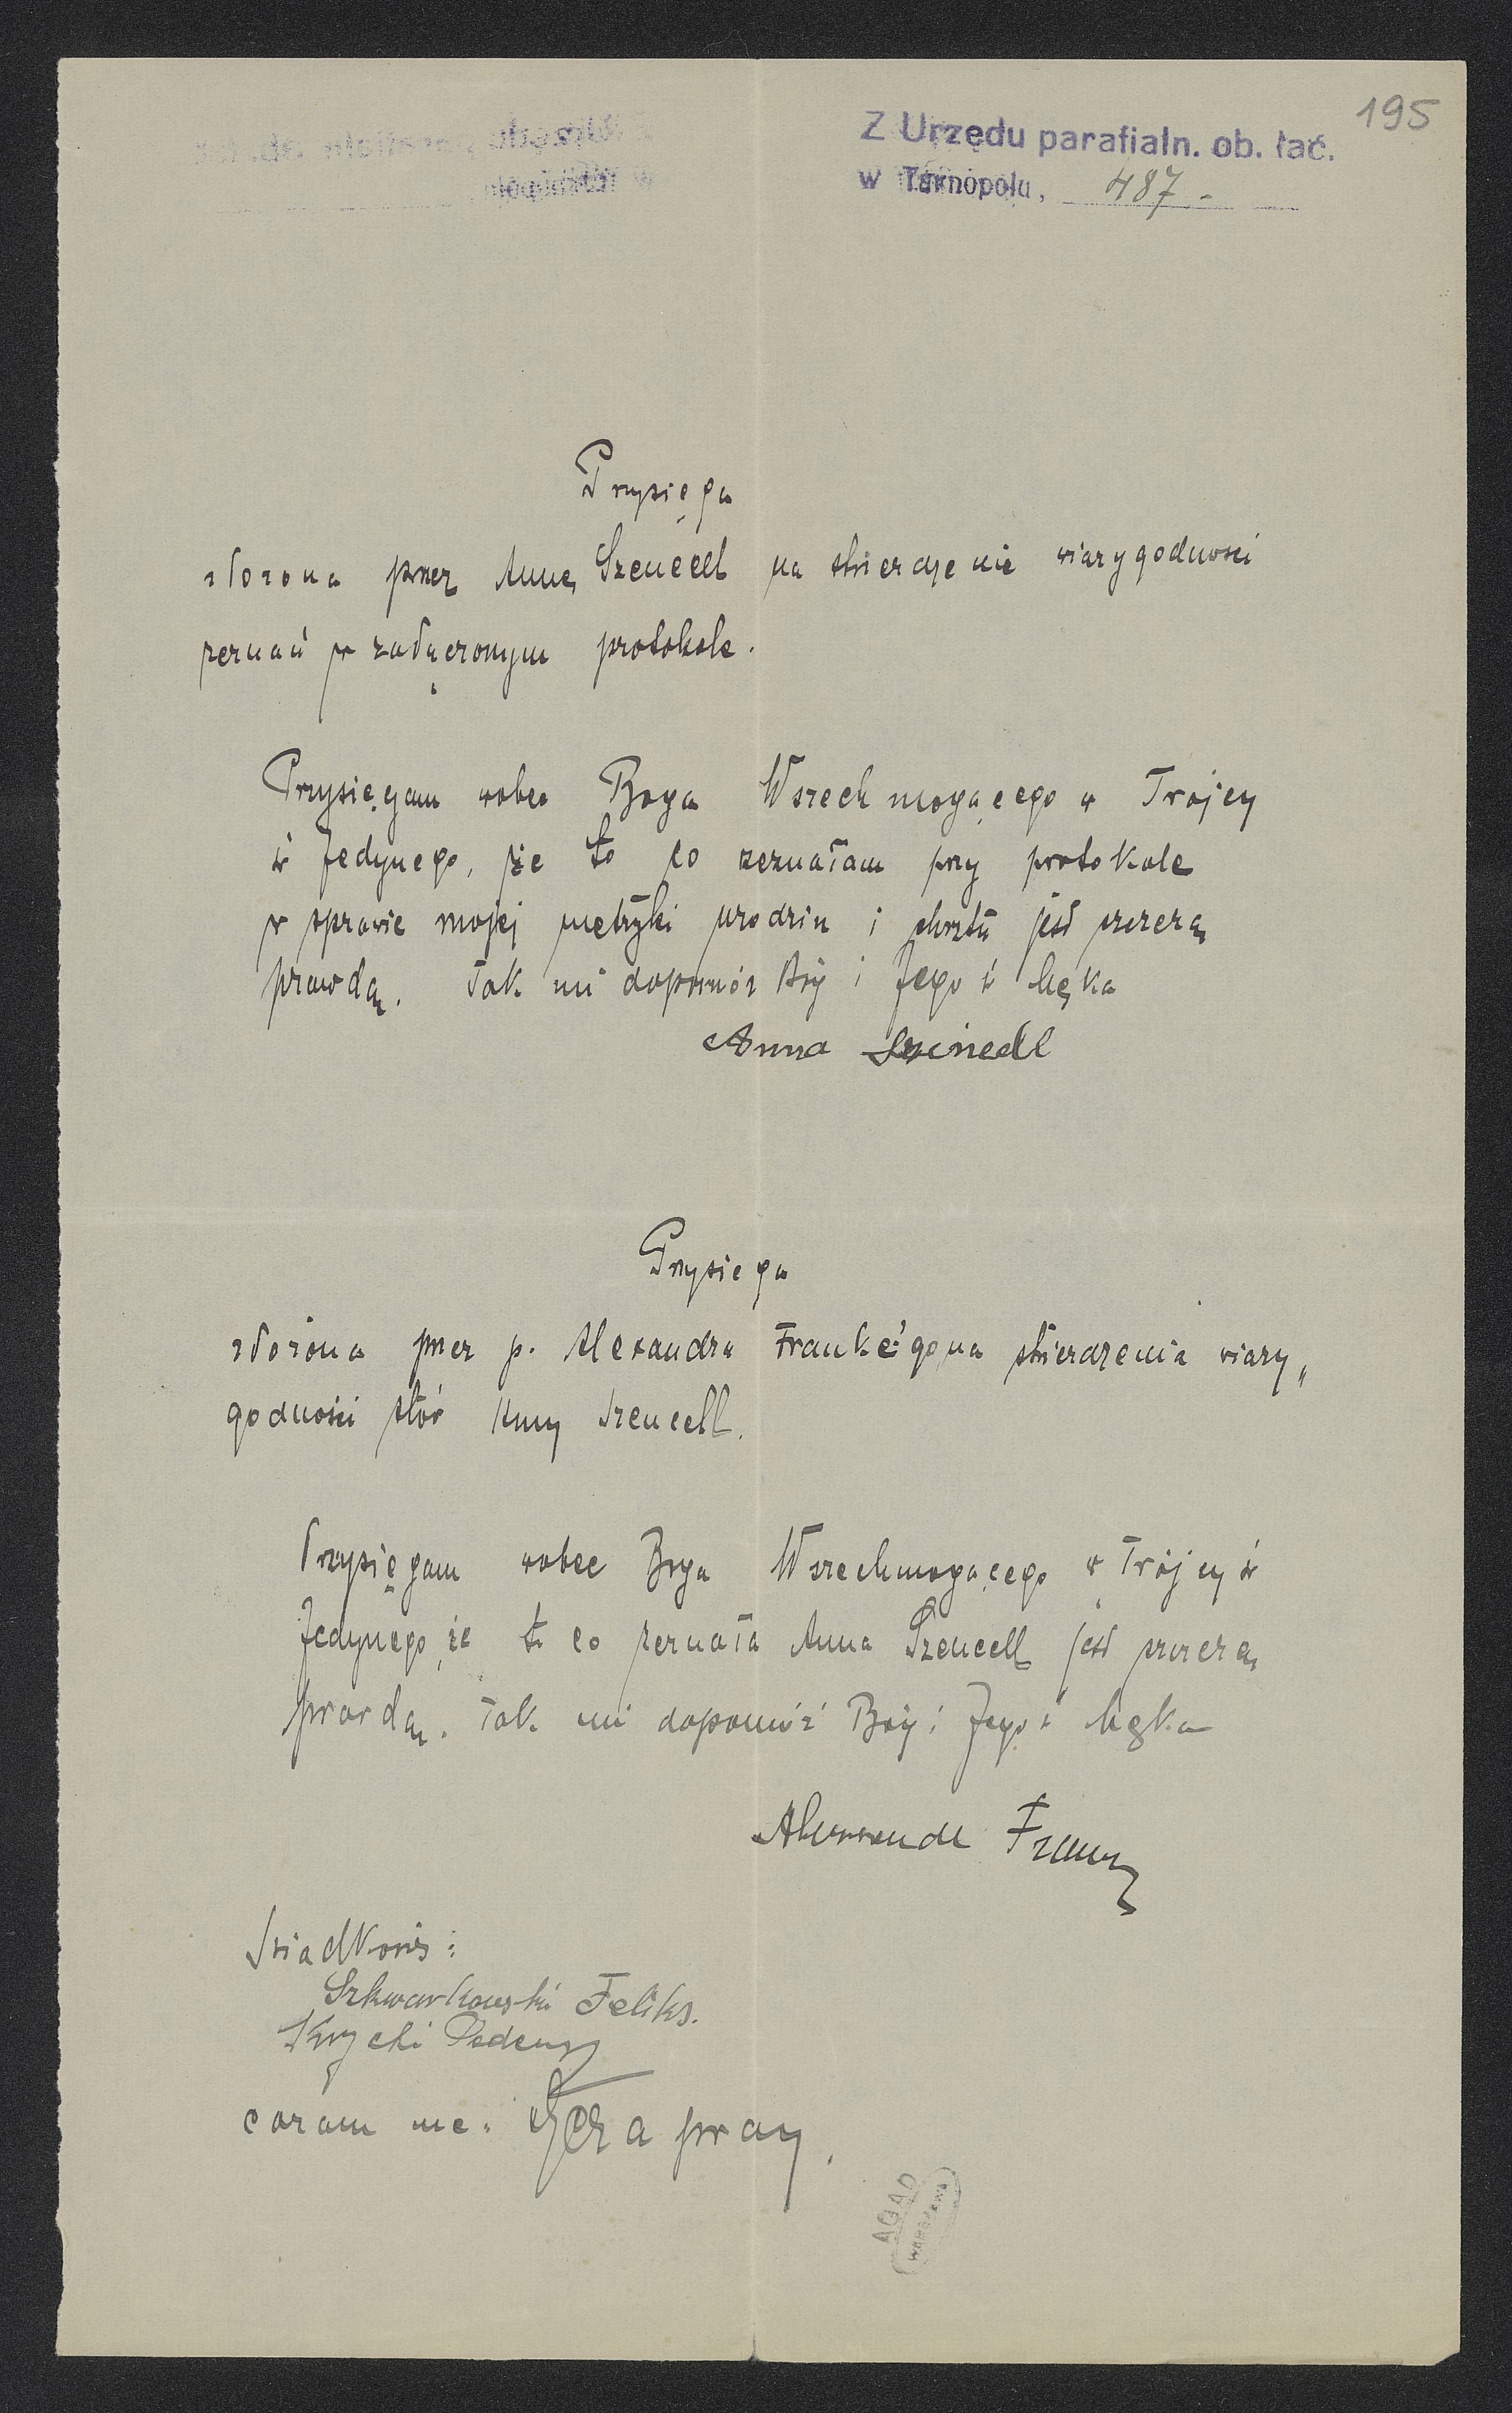 195
Z Urzędu parafialn. ob. łać.
w Tarnopolu, 487.-
Przysięga
złożona przez Annę Szenedl na stwierdzenie wiarygodności
zeznań w załączonym protokole.
Przysięgam wobec Boga Wszechmogącego w Trójcy
ś Jedynego, że to co zeznałam przy protokole
w sprawie mojej metryki urodzin i chrztu jest szczerą
prawdą. Tak mi dopomóż Bóg i Jego ś Męka
Anna
Przysięga
złożona przez p. Alexandra Franke'go na stwierdzenia wiary„
godności słów Anny
Przysięgam wobec Boga Wszechmogącego w Trójcy ś
Jedynego że to co zeznała Anna jest szczerą
prawdą. Tak mi dopomóż Bóg i Jego ś Męka
Świadkowie:
Szkwarkowski Feliks.
coram me:
AGAD
WARSZAWA